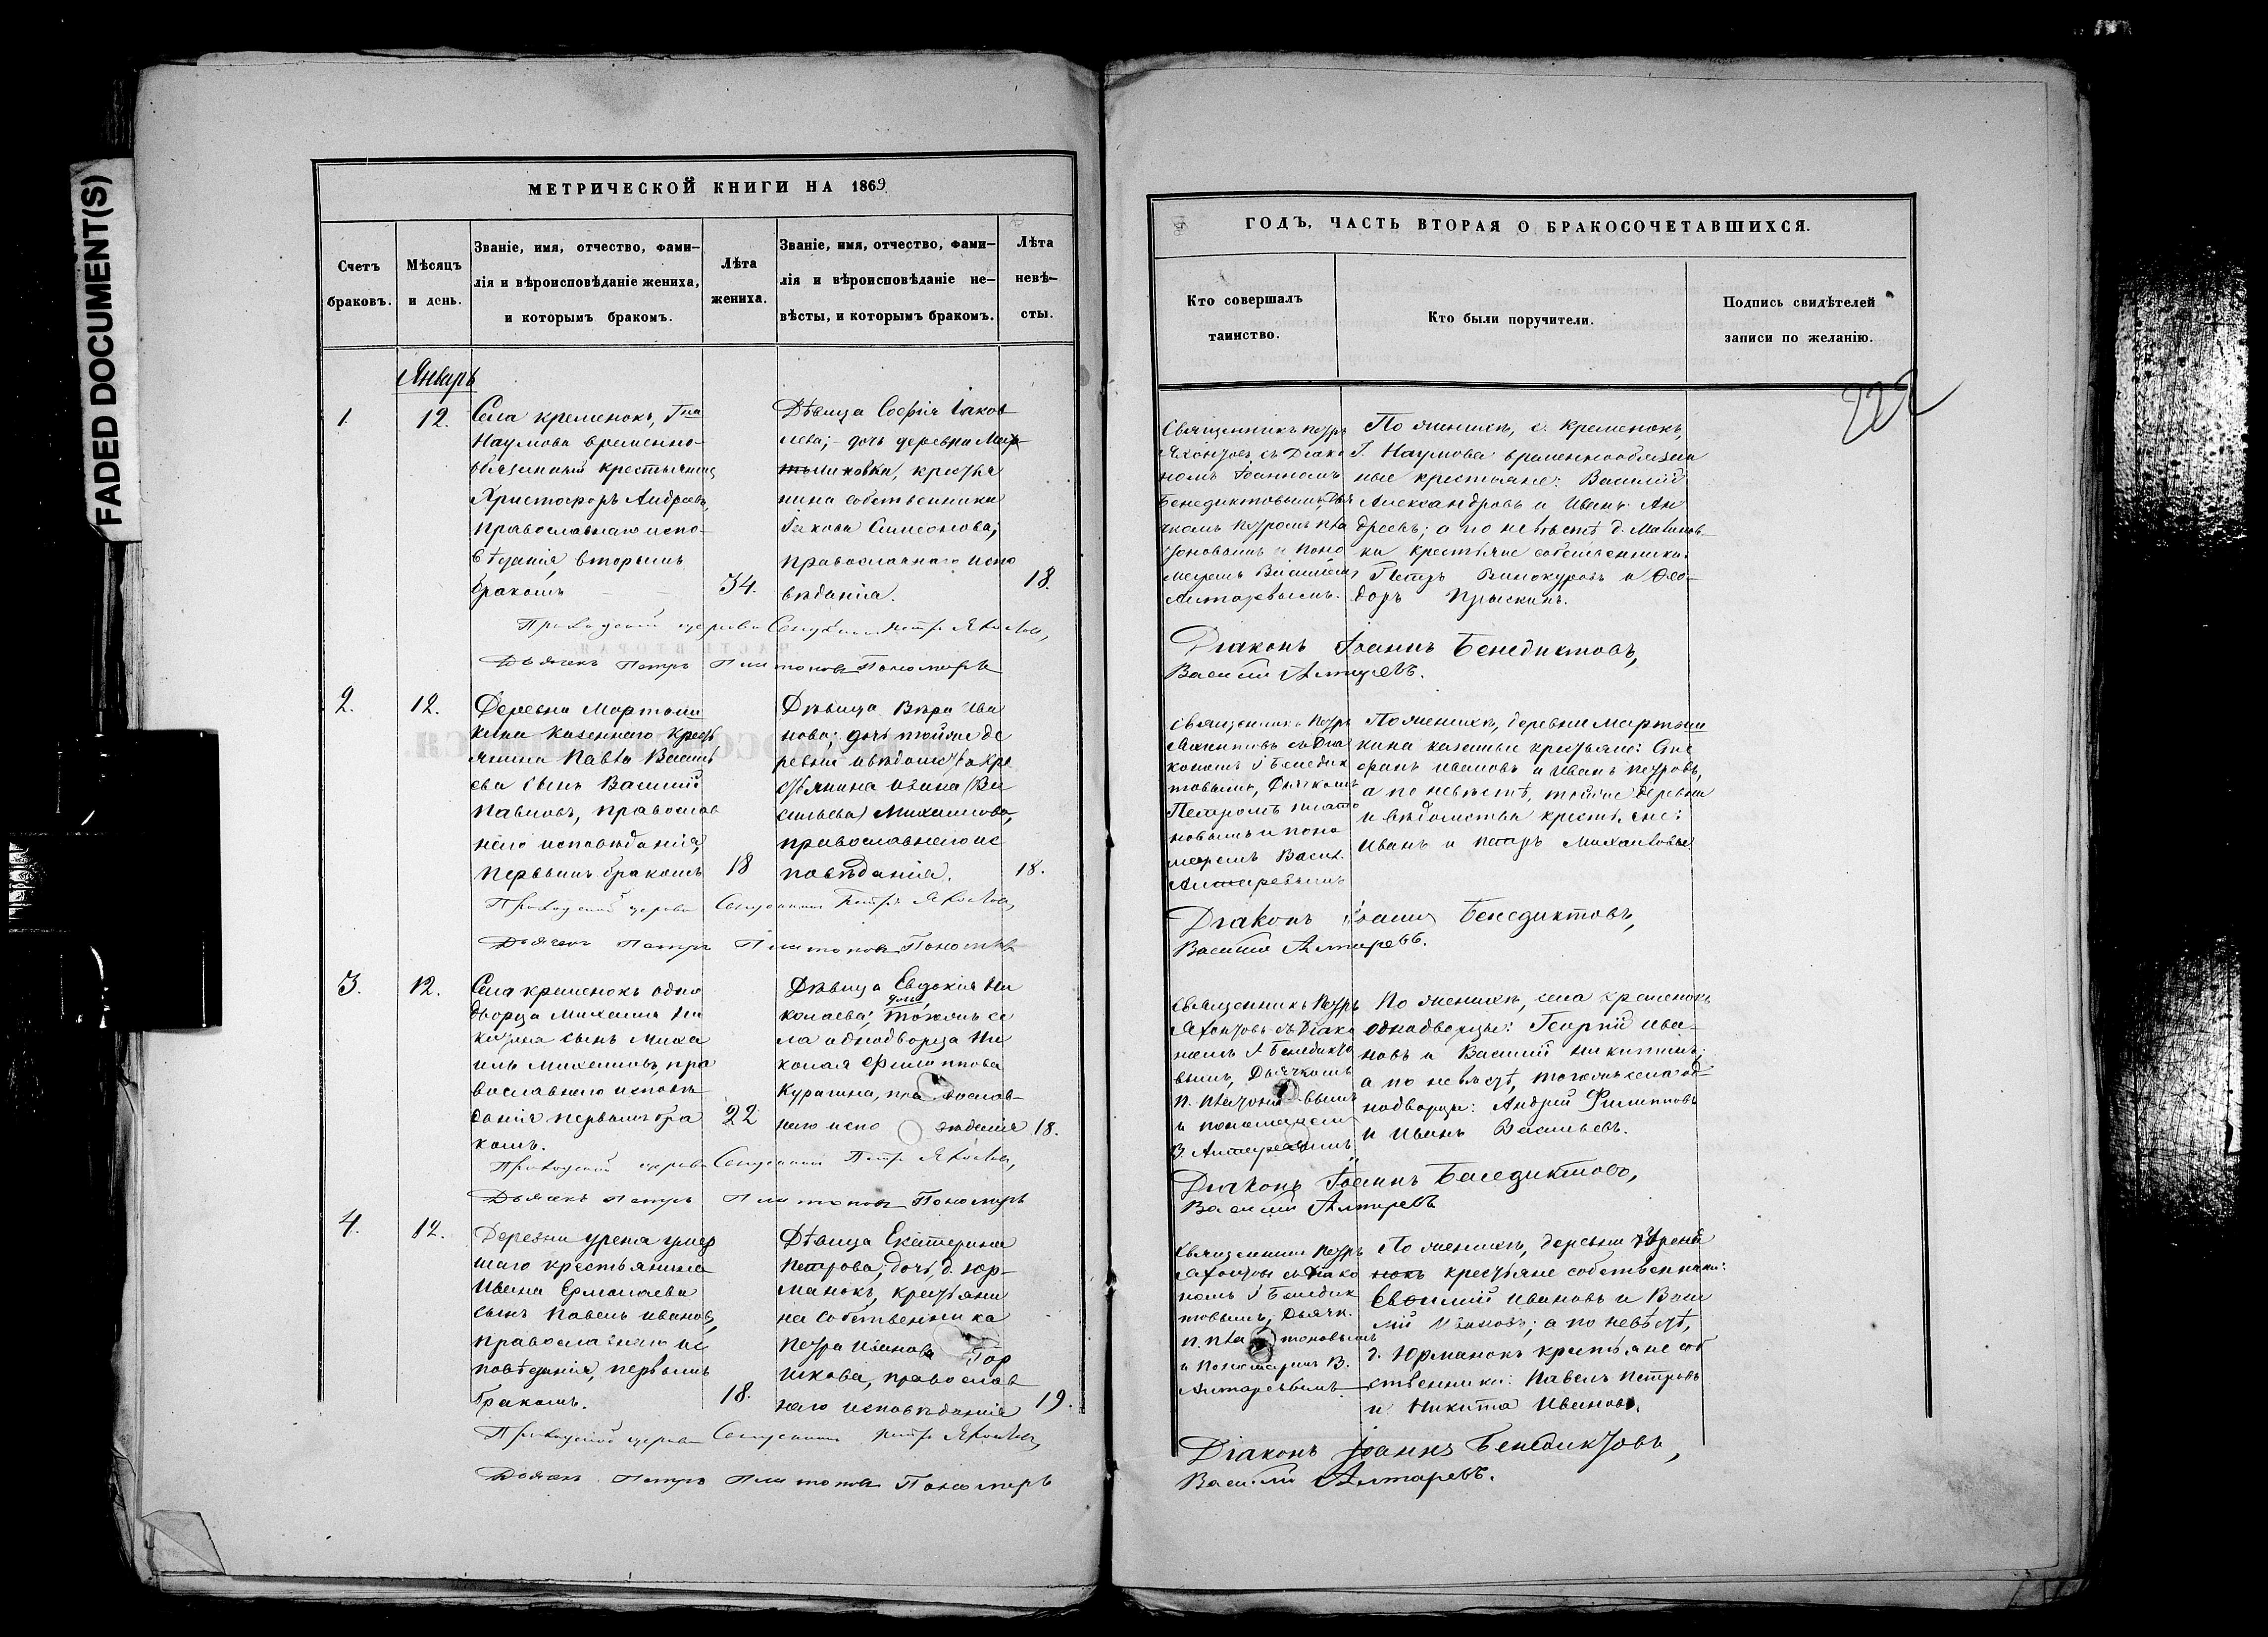 FADED DOCUMENT(S)
МЕТРИЧЕСКОЙ КНИГИ НА 1869
Счетъ браковъ.
Мѣсяцъ и день.
Званіе, имя, отчество, фами-
лія и вѣроисповѣданіе жениха,
и которымъ бракомъ.
Лѣта
жениха.
Званіе, имя, отчество, фами-
лія и вѣроисповѣданіе не-
вѣсты, и которымъ бракомъ.
Лѣта
невѣ-
сты.
Январь
1.
12.
Села Кременокъ, Гна
Наумова временно-
обязанный крестьянинъ
Христофоръ Андреевъ,
православнаго испо-
вѣданія, вторымъ
бракомъ
34.
Дѣвица Софія Іаков
лева; дочь деревни
крестья
нина собственника
Іакова Симеонова,
православнаго испо
вѣданія.
18.
Приходской церкви Священникъ Петръ Яхонтовъ,
Дьячекъ Петръ Платоновъ Пономарь
2.
12.
Деревни Мартыш
кина казеннаго кресть
янина Павла Василь
ева сынъ Василій
Павловъ, православ
наго исповѣданія,
первымъ бракомъ
18
Дѣвица Вѣра Ива
нова; дочь тойже де
ревни и вѣдомства кре
стьянина Ивана (Ва
сильева) Михаилова,
православнаго ис
повѣданія.
18.
Приходской церкви Священникъ Петръ Яхонтовъ,
Дьячекъ Петръ Платоновъ Пономарь
3.
12.
Села Кременокъ одно
дворца Михаила Ни
китина сынъ Миха
илъ Михаиловъ, пра
вославнаго исповѣ
данія первымъ бра
комъ.
22
Дѣвица Евдокія Ни
колаева; дочь тогожъ се
ла однодворца Ни
колая Филиппова
Курагина, православ-
наго испо вѣданія
18.
Приходской церкви Священникъ Петръ Яхонтовъ,
Дьячекъ Петръ Платоновъ Пономарь
4.
12.
Деревни Урена умер
шаго крестьянина
Ивана Ермолаева
сынъ Павелъ Ивановъ,
православнаго ис
повѣданія, первымъ
бракомъ.
18.
Дѣвица Екатерина
Петрова; дочь, д. Юр-
манокъ, крестьяни
на собственника
Петра Иванова Гор
шкова, православ
наго исповѣданія
19.
Приходской церкви Священникъ Петръ Яхонтовъ,
Дьячекъ Петръ Платоновъ Пономарь
ГОДЪ, ЧАСТЬ ВТОРАЯ О БРАКОСОЧЕТАВШИХСЯ.
Кто совершалъ
таинство.
Кто были поручители.
Подпись свидѣтелей
записи по желанію.
222
Священникъ Петръ
Яхонтовъ, съ Діако
номъ Іоанномъ
Бенедиктовымъ, Дья
чкомъ Петромъ Пла
тоновымъ и Поно
маремъ Василіемъ
Алтаревымъ.
По женихѣ, с. Кременокъ,
Г. Наумова временнообязан
ные крестьяне: Василій
Александровъ и Иванъ Ан
дреевъ; а по невѣстѣ д.
ки крестьяне собственники:
Петръ Винокуровъ и Ѳео-
доръ Прыскинъ.
Діаконъ Іоаннъ Бенедиктовъ,
Василій Алтаревъ.
Священникъ Петръ
Яхонтовъ съ Діа
кономъ І Бенедик
товымъ, Дьячкомъ
Петромъ Плато
новымъ и Поно
маремъ Васил.
Алтаревымъ
По женихѣ, деревни Мартыш
кина казенные крестьяне: Сте
фанъ Ивановъ и Иванъ Петровъ,
а по невѣстѣ, тойже деревни
и вѣдомства крестьяне:
Иванъ и Петръ Михаиловы.
Діаконъ Іоаннъ Бенедиктовъ,
Василій Алтаревъ.
Священникъ Петръ
Яхонтовъ съ Діако
номъ І Бенедикто
вымъ, Дьячкомъ
П. Платоновымъ
и Пономаремъ
В. Алтаревымъ
По женихѣ, села Кременокъ
однодворцы: Георгій Ива-
новъ и Василій Никитинъ;
а по невѣстѣ, тогожъ села од-
нодворцы: Андрей Филипповъ
и Иванъ Васильевъ.
Діаконъ Іоаннъ Бенедиктовъ,
Василій Алтаревъ
Священникъ Петръ
Яхонтовъ съ Діако
номъ І Бенедик
товымъ, Дьячк.
П. Платоновымъ
и Пономаремъ В.
Алтаревымъ.
По женихѣ, деревни Урена
крестьяне собственники:
Ивановъ и Васи
лій ; а по невѣстѣ,
д. Юрманокъ крестьяне соб
ственники: Павелъ Петровъ
и Никита Ивановъ.
Діаконъ Іоаннъ Бенедиктовъ,
Василій Алтаревъ.